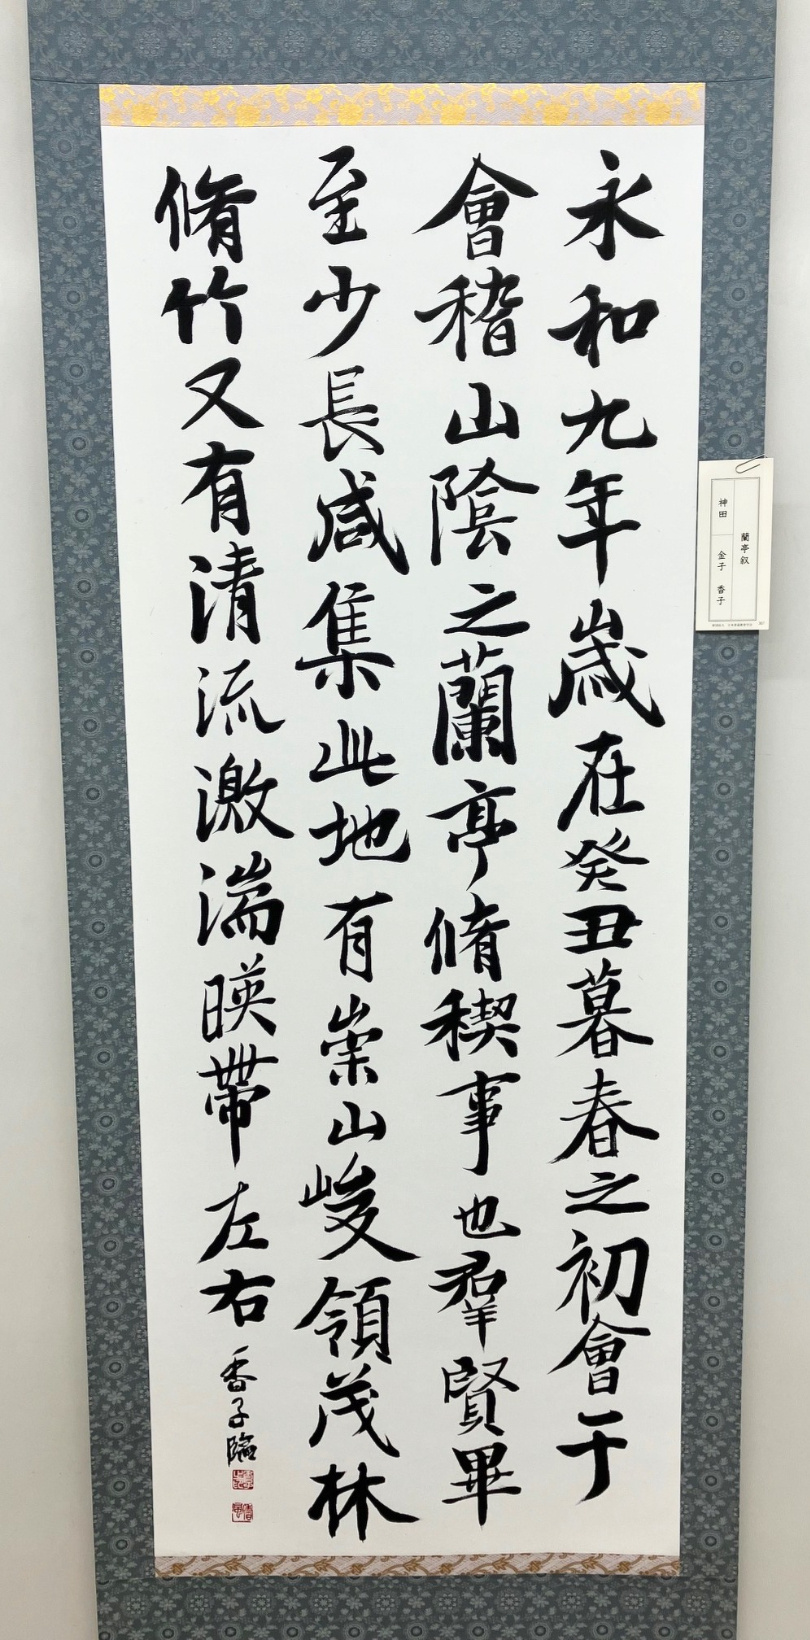 永和九年歳在癸丑暮春之初會于
會稽山陰之蘭亭脩稧事也羣賢畢
至少長咸集此地有崇山峻領茂林
脩竹又有清流激湍暎帶左右
香子臨
蘭亭叙
神田 金子 香子